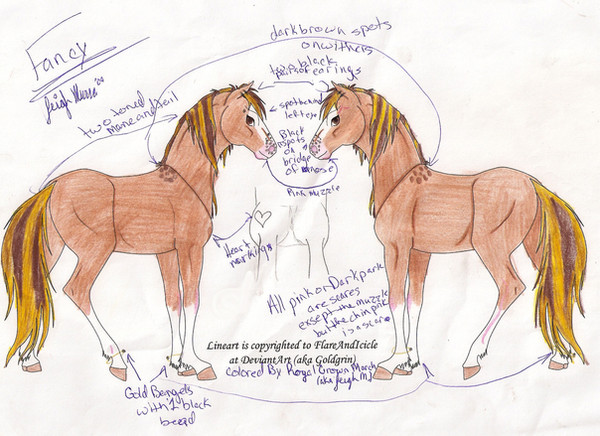 Fancy
dark brown spots
on withers
two black
pairs of earings
two toned
mane and tail
spot behind
left eye
Black
spots
on
bridge
of nose
Pink Muzzle
Heart
markings
All pink or Dark pink
are scares
except the muzzle
but the chin pink
is a scare
Lineart is copyrighted to FlareAndIcicle
at DeviantArt (aka Goldgrin)
colored By Royal Crown March
(aka Leigh M)
Gold Bangels
with 1 black
bead